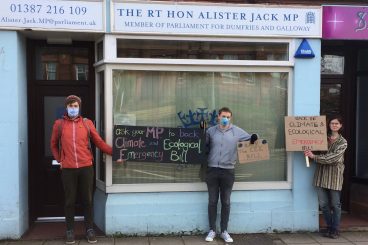 01387 216 109
Alister.Jack.MP@parliament.uk
THE RT HON ALISTER JACK MP
MEMBER OF PARLIAMENT FOR DUMFRIES AND GALLOWAY
ask your MP to back
Climate and Ecological
Emergency Bill
BACK THE
CLIMATE &
ECOLOGICAL
EMERGENCY
BILL